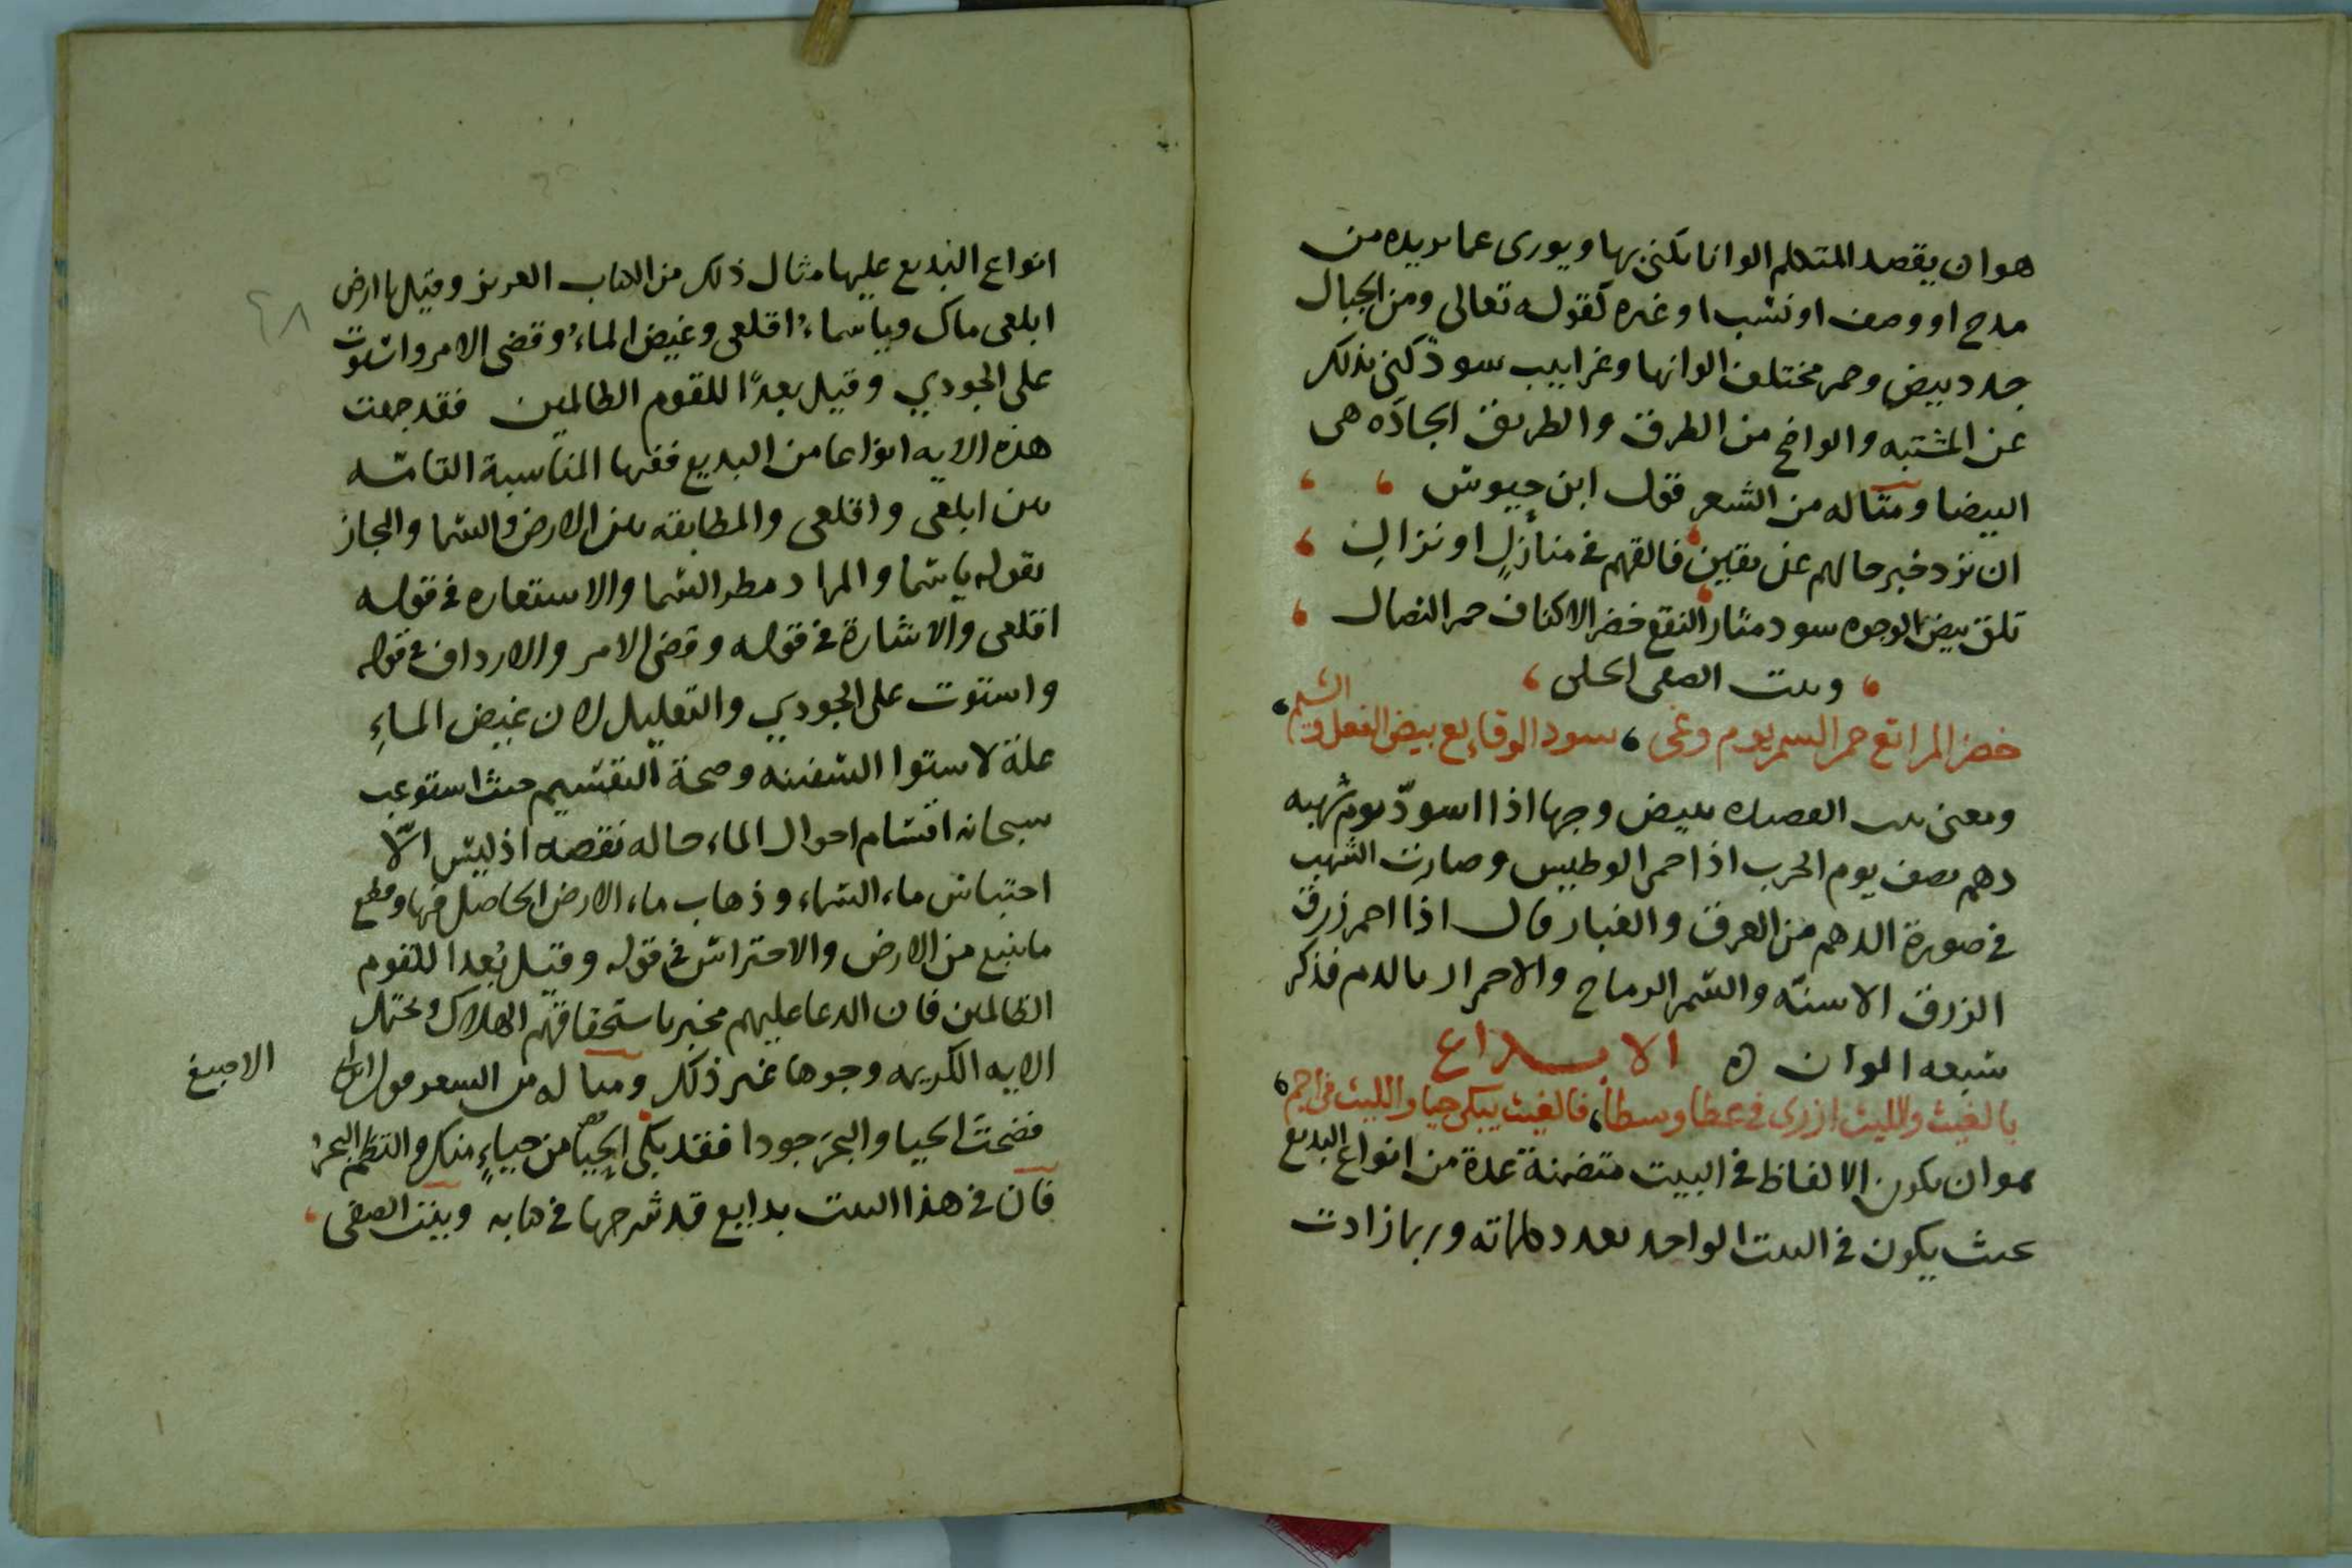 هو ان يقصد المتكلم الوانا يكنى بها ويورى عما يريده من
مدح او وصف او نسب او غيره كقوله تعالى ومن الجبال
جدد بيض وحمر مختلف الوانها وغرابيب سود كنى بذلك
عن المشتبه والواضح من الطرق والطريق الجادّه هى
البيضا ومثاله من الشعر قول ابن حيوش
ان ترد خبر حالهم عن يقين فالقهم فى منازل او نزال
تلق بيض الوجوه سود مثار النقع خضر الاكناف حمر النصال
وبيت الصفى الحلى
خضر المرابع حمر السمر يوم وغى سود الوقايع بيض الفعل والشيم
ومعنى بيت القصيده بيض وجها اذا اسودّ يوم شهبه
دهم يصف يوم الحرب اذا حمى الوطيس وصارت الشهب
فى صورة الدهم من العرق والغبار قال اذا احمر زرق
الزرق الاسنّه والسّمر الرماح والاحمرار بالدم فذكر
سبعه الوان ه الابداع
بالغيث والليث ازرى فى عطا وسطا فالغيث يبكى حيا والليث فى اجم
هو ان يكون الالفاظ فى البيت متضمنة عدة من انواع البديع
بحيث يكون فى البيت الواحد بعدد كلماته وربما زادت
انواع البديع عليها مثال ذلك من الكتاب العزيز وقيل يا ارض
ابلعى ماك ويا سماء اقلعى وغيض الماء وقضى الامر واستوت
على الجودي وقيل بعدًا للقوم الظالمين فقد جمعت
هذه الايه انواعا من البديع ففيها المناسبة التامّه
بين ابلعى واقلعى والمطابقه بين الارض والسما والمجاز
بقوله يا سما والمراد مطر السما والاستعاره فى قوله
اقلعى والاشارة فى قوله وقضى الامر والارداف فى قوله
واستوت على الجودي والتعليل لان غيض الماءِ
علة لاستوا السفينه وصحة التقسيم حيث استوعب
سبحانه اقسام احوال الماء حاله نقصه اذ ليس الّا
احتباس ماء السماء وذهاب ماء الارض الحاصل فيها وقطع
ما ينبع من الارض والاحتراس فى قوله وقيل بُعدا للقوم
الظالمين فان الدعا عليهم مخبر باستحقاقهم الهلاك ويحتمل
الايه الكريمه وجوها غير ذلك ومثاله من الشعر قول ابن ابى
الاصبع
فضحت الحيا والبحر جودا فقد بكى الحيا من حياءٍ منك والتطم البحر
فان فى هذا البيت بدايع قد شرحها فى كتابه وبيت الصفى